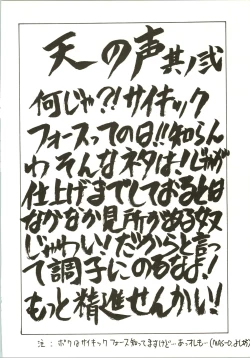 天の声其ノ弐
何じゃ?!サイキック
フォースってのは!!知らん
わそんなネタは!じゃが
仕上げまでしておるとは
なかなか見所がある奴
じゃわい!だからと言っ
て調子にのるなよ!
もっと精進せんかい!
注:ボクはサイキックフォース知ってますけど…あっすしも…